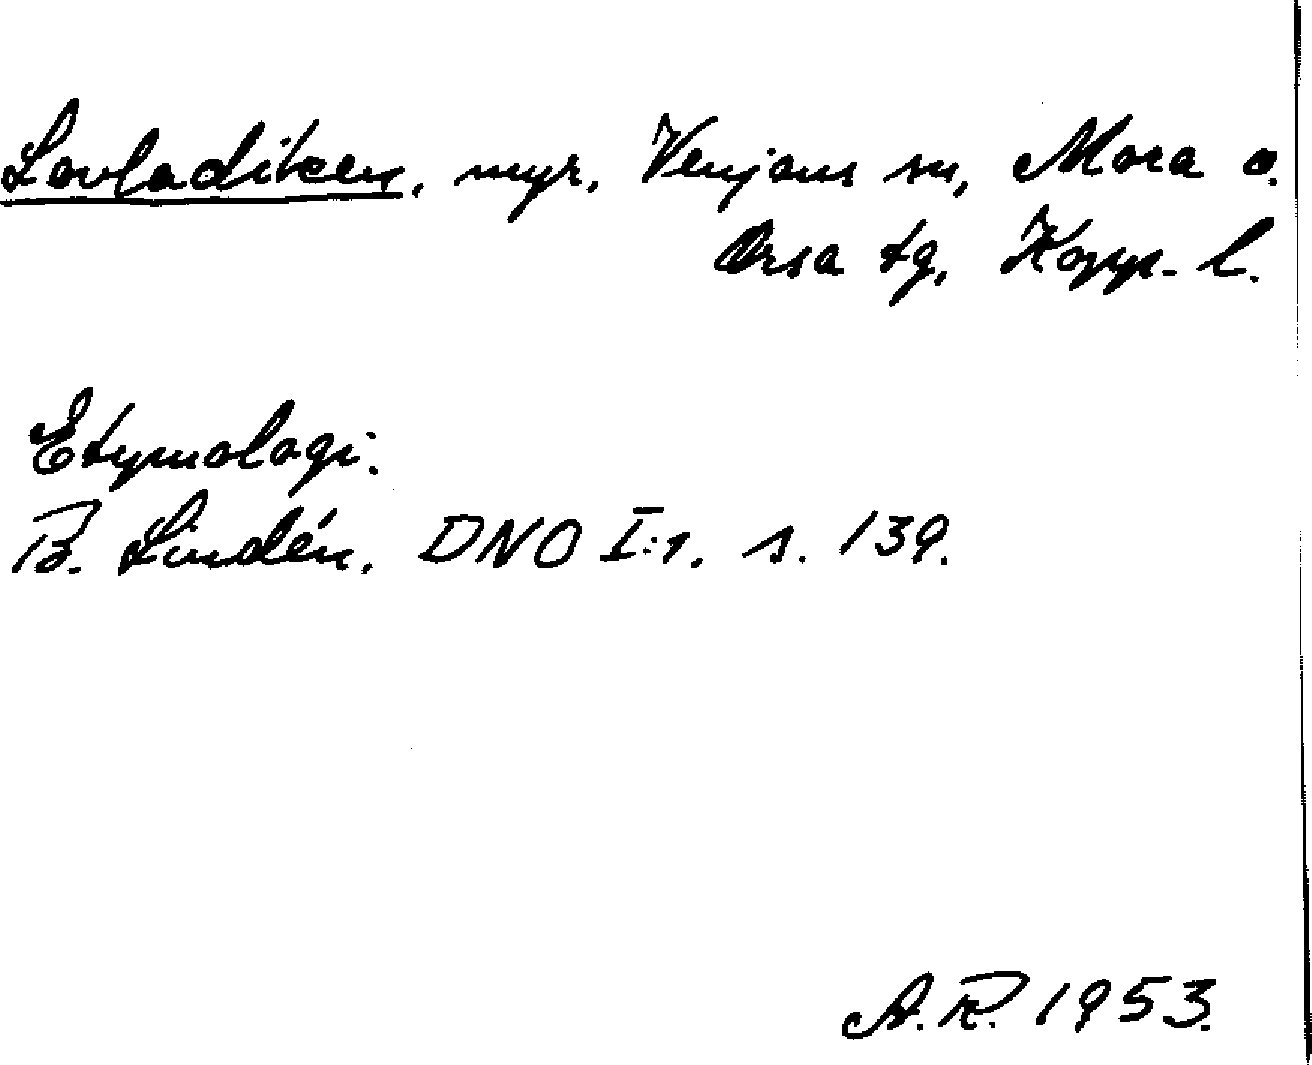 Lovladiken, myr, Venjans sn, Mora o.
Orsa tg, Kopp. l.
Etymologi:
B. Lindén, DNO I:1. s. 139.
A.R. 1953.